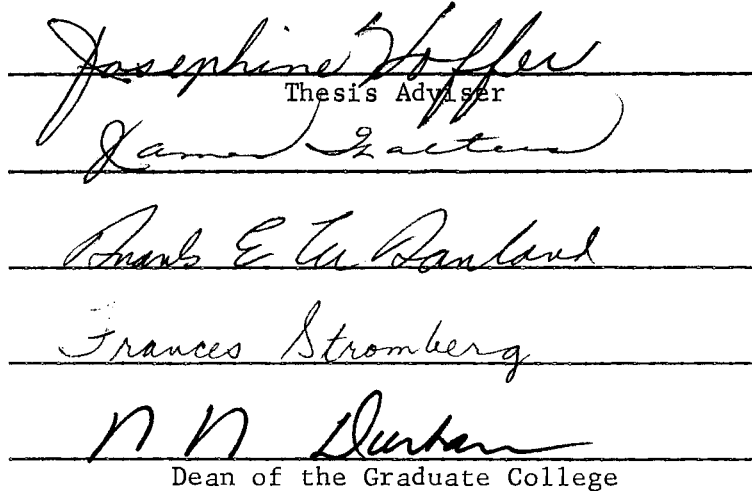 Josephine Hoffer
Thesis Adviser
James Walters
Frances Stromberg
N N Durham
Dean of the Graduate College